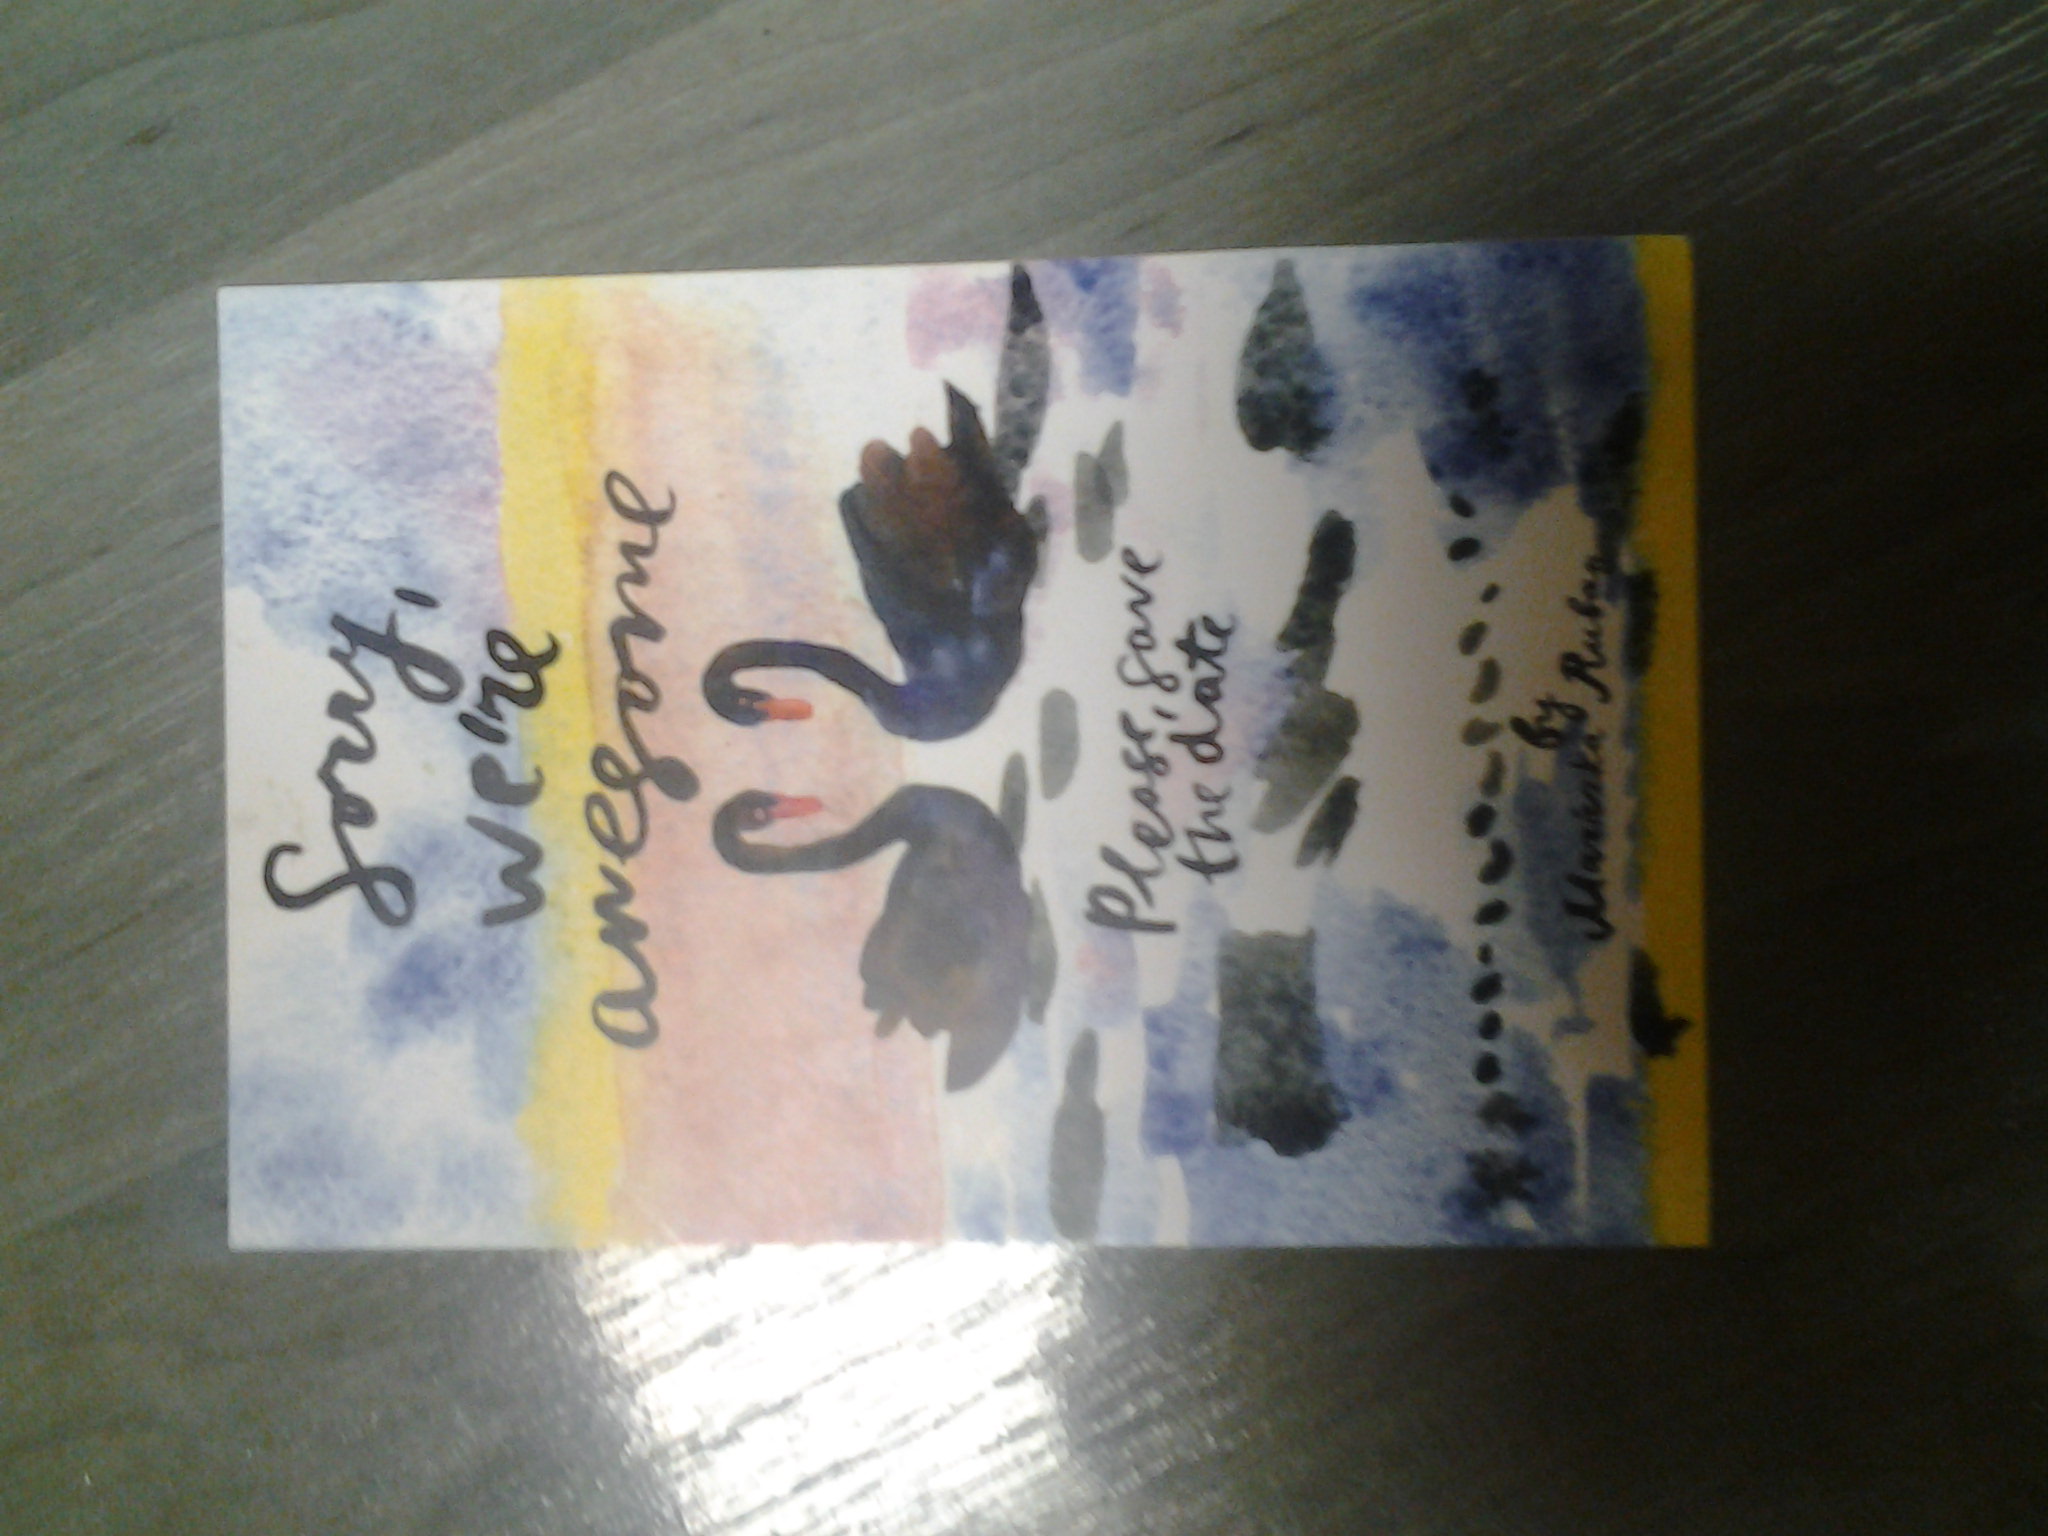 Sorry,
we're
awesome
Please, save
the date
by
Ruban